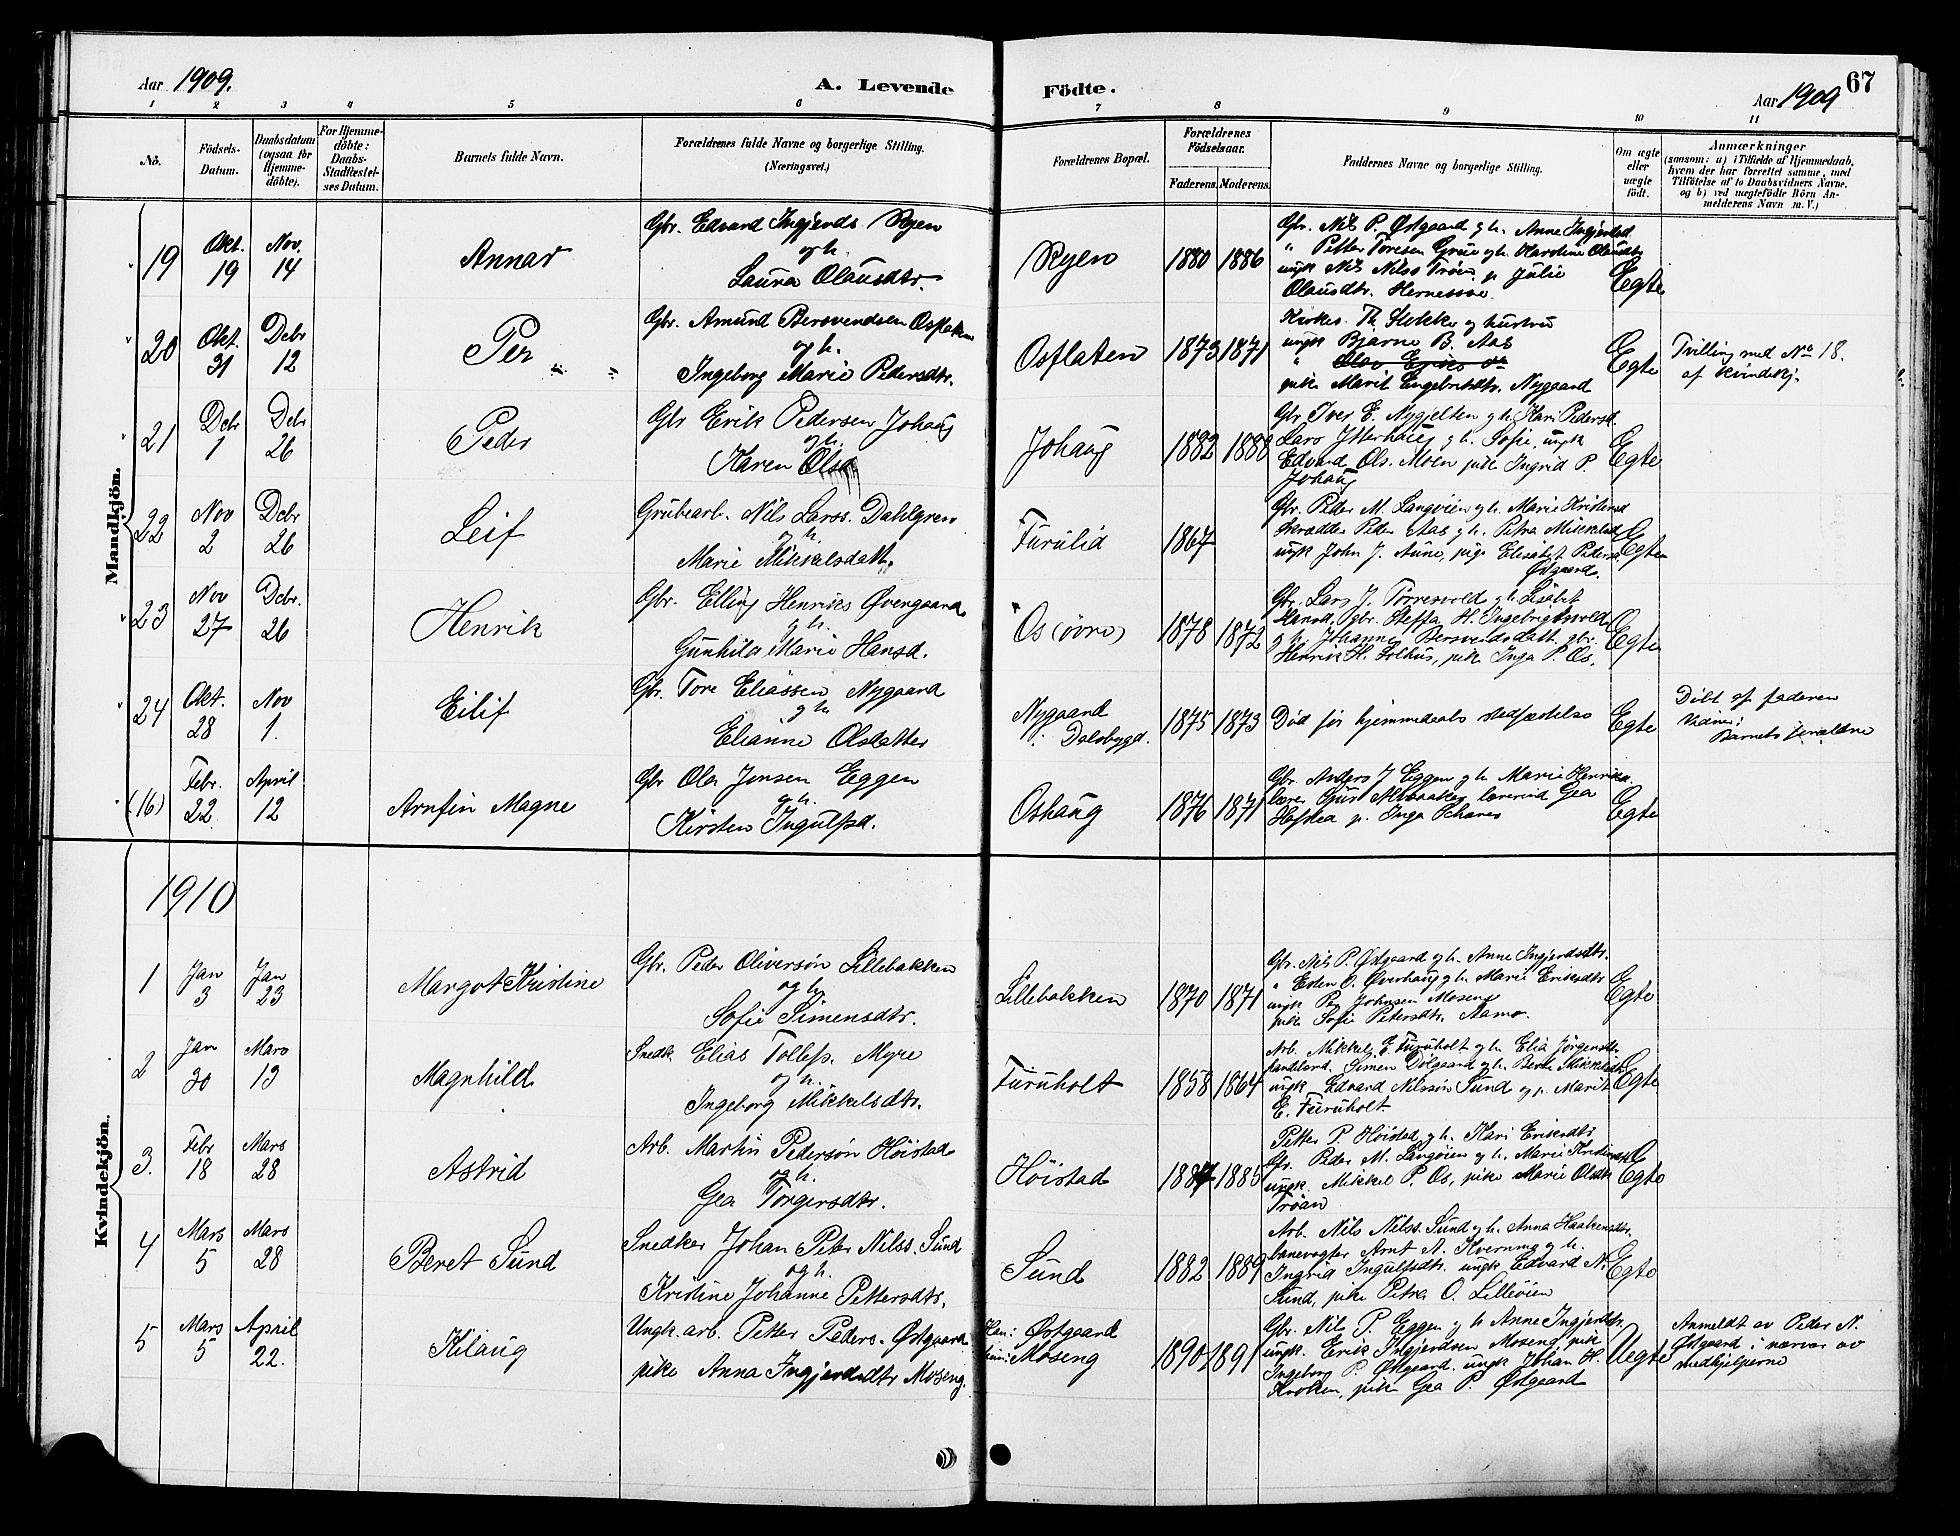 Aar 1909.
A. Levende Födte.
Aar 1909
67
1 2 3 4 5 6 7 8 9 10 11
No.
Födsels-Datum.
Daabsdatum (ogsaa for Hjemme-döbte).
For Hjemme-döbte: Daabs-Stadfæstel-ses Datum.
Barnets fulde Navn.
Forældrenes fulde Navne og borgerlige Stilling. (Næringsvei.)
Forældrenes Bopæl.
Forældrenes Födselsaar.
Faderens. Moderens.
Faddernes Navne og borgerlige Stilling.
Om ægte eller uægte födt.
Anmærkninger
(saasom: a) i Tilfælde af Hjemmedaab,
hvem der har forrettet samme, med
Tilföielse af to Daabsvidners Navne.
og b) ved uægtefödte Börn An-
melderens Navn m. V.)
Mandkjön.
19
Okt. 19
Nov. 14
Annar
Gbr. Edvard Ingjerds Ryen
og h.
Laura Olausdtr.
Ryen
1880 1886
Gbr. Nils P. Østgaard g h. Anne Ingjertsd.
" Petter Toresen Grue g h. Karoline Olausdtr
ungk Nils Nilss Trøen p Julie
Olausdtr. Hernesmo
Egte
20
Okt. 31
Debr 12
Per
Gbr. Amund Bersvendsen Osflaten
og h.
Ingeborg Marie Pedersdtr.
Osflaten
1873 1871
Kirkes. Th. Stokke og hustru
ungk Bjarne B. Aas
pike Marit Engebretsdtr. Nygaard
Egte
Tvilling med No 18.
af kvindekj.
21
Debr 1
Debr 26
Peder
Gbr Erik Pedersen Johaug
og h.
Karen Olsd
Johaug
1882 1888
Gbr Iver E. Nygjelten g h. Kari Pedersd.
Lars Ytterhaug g h. Sofie ungk
Edvard Ols. Moen pike Ingrid P.
Johaug
Egte
22
Nov 2
Debr 26
Leif
Grubearb. Nils Larss. Dahlgren
og h.
Marie Mikkelsdatt.
Furulid
1867
Gbr. Peder M. Langøien g h. Marie Kristensd
skrædder Peter Aas g h. Petra Mikkelsd
ungk John J. Aune, pige Elisabet Pedersd
Østgaard.
Egte
23
Nov 27
Debr. 26
Henrik
Gbr. Elling Henriks Øvergaard
g h.
Gunhild Marie Hansd.
Os (övre)
1878 1872
Gbr. Lars J. Torresvold g h. Lisabet
Hansd, gbr. Steffa H. Ingebrigtsvold
g h. Johanne Bersvendsdatt. gbr.
Henrik H. Solhus, pike Inga P. Os.
Egte
24
Okt. 28
Nov 1.
Eilif
Gbr. Tore Eliassen Nygaard
g h
Elianne Olsdatter
Nygaard
i Dalsbygd.
1875 1873
Død før hjemmedaabs stadfæstelse
Egte
Döbt af faderen
Vidner:
Barnets forældre
(16)
Febr. 22.
April 12
Arnfin Magne
Gbr Ola Jonsen Eggen
g h.
Kirsten Ingulfsd.
Oshaug
1876 1871
Gbr. Anders J Eggen g h. Marie Henriksd.
lærer Guri lærerind Gea
p. Inga Schanes
Egte
1910
Kvindekjön.
1
Jan 3
Jan 23
Margot Kristine
Gbr. Peder Oliversøn Lillebakken
og h
Sofie Simensdtr.
Lillebakken
1870 1871
Gbr. Nils P. Østgaard g h. Anne Ingjerdsdtr.
" Esten O. Øverhaug g h. Marie Eriksdtr
ungk Per Johnsen Moseng
pike Sofie Petersdtr. Aamo.
Egte
2
Jan 30
Mars 13
Magnhild
Snedk. Elias Tollefs. Myre
og h.
Ingeborg Mikkelsdtr.
Furuholt
1858 1864
Arb. Mikkel E. Furuholt g h. Elia Jørgensdtr
handlend. Simen Dölgaard g h. Berte Mikkelsdtr
ungk. Edvard Nilssøn Sund og p. Marit
E. Furuholt
Egte
3.
Febr 18
Mars 28
Astrid
Arb. Martin Pedersøn Höistad
og h.
Gea Torgersdtr.
Höistad
1887 1885
Petter P. Höistad g h. Kari Eriksdtr
Gbr. Peder M. Langøien g h. Marie Kristensd
ungk. Mikkel P. Os, pike Marie Olsdtr
Trøan
Egte
4
Mars 5
Mars 28
Beret Sund
Snedker Johan Peter Nilss. Sund
og h.
Kristine Johanne Pettersdtr.
Sund
1882 1889
Arb. Nils Nilss. Sund g h. Anna Haakensdtr.
banevogter Arnt A. Kverning g h.
Ingrid Ingulfsdtr. ungk Edvard N.
Sund, pike Petra O. Lilleøien
Egte
5
Mars 5
April 22.
Kilaug
Ungk. arb. Petter Peders. Østgaard
pike Anna Ingjerdsdtr Moseng.
Han: Østgaard
hun: Moseng
1890 1891
Gbr. Nils P. Eggen g h Anne Ingjerdsdtr.
ungk. Erik Ingjerdsen Moseng pike
Ingeborg P. Østgaard. ungk Johan H.
Kroken, pike Gea P. Østgaard
Uegte
Anmeldt av Peder N.
Østgaard i nærvær av
medhjelperne